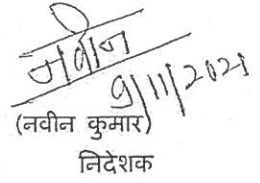 नवीन
9/11/2021
(नवीन कुमार)
निदेशक